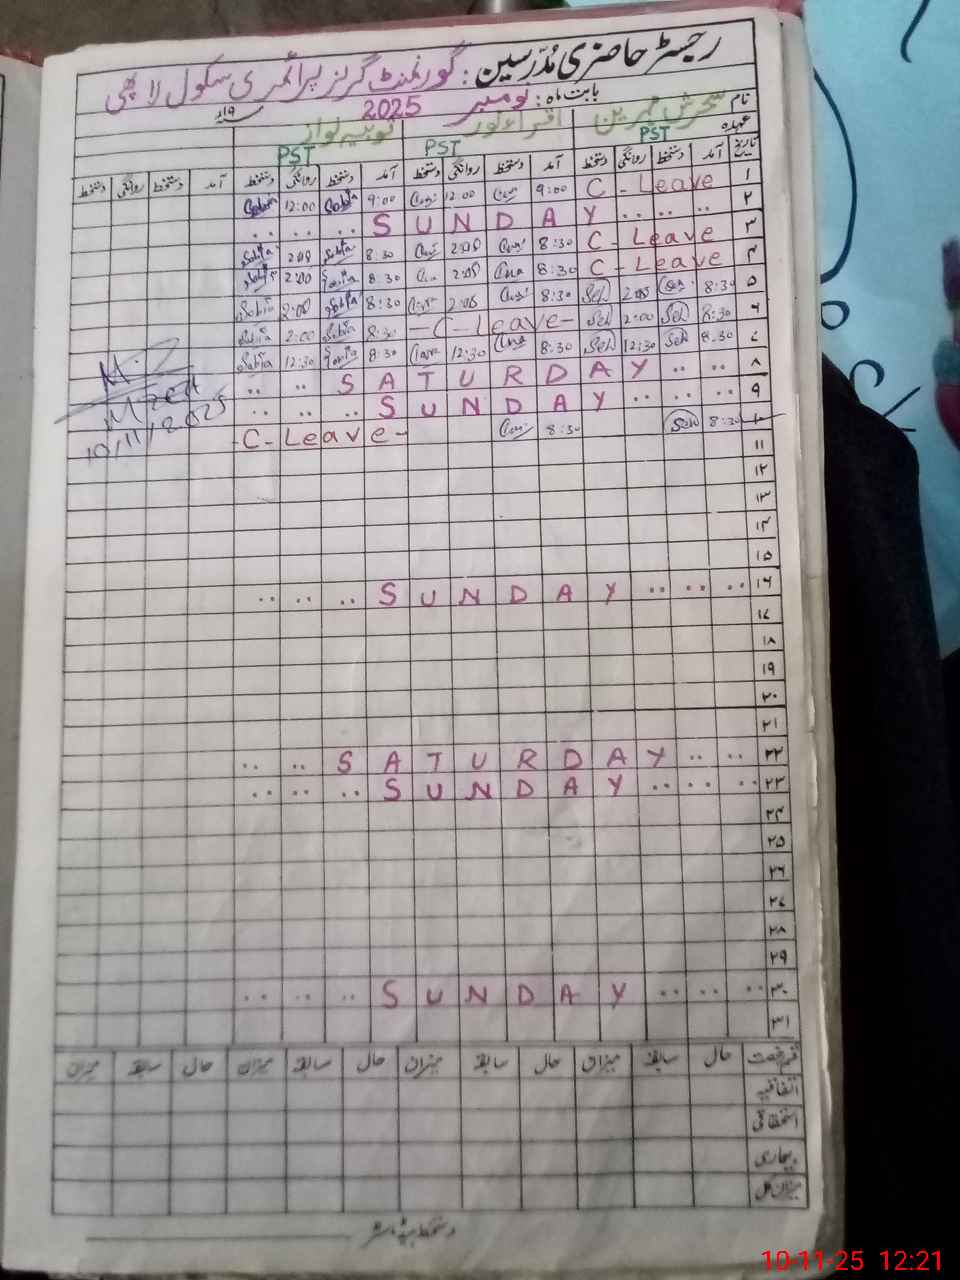 رجسٹر حاضری مُدرّسین : گورنمنٹ گرلز پرائمری سکول لاچی
بابت ماہ : نومبر 2025 ۱۹ء
نام سحرش مہرین اقراء نور ثوبیہ نواز
عہدہ PST PST PST
تاریخ آمد دستخط روانگی دستخط آمد دستخط روانگی دستخط آمد دستخط روانگی دستخط آمد دستخط روانگی دستخط
۱ C - Leave 9:00 12:00 9:00 Sobia 12:00 Sobia
۲ .. .. .. S U N D A Y .. .. .. ..
۳ C - Leave 8:30 2:00 8:30 Sobia 2:00 Sobia
۴ C - Leave 8:30 2:00 8:30 Sobia 2:00 Sobia
۵ 8:30 2:00 Seh 8:30 2:00 8:30 Sobia 2:00 Sobia
۶ 8:30 Seh 2:00 Seh - C - Leave - 8:30 Sobia 2:00 Sobia
۷ 8:30 Seh 12:30 Seh 8:30 12:30 8:30 Sobia 12:30 Sobia
۸ .. .. S A T U R D A Y .. ..
۹ .. .. .. S U N D A Y .. .. ..
۱۰ 8:30 Seh 8:30 - C - Leave -
10/11/2025
۱۱
۱۲
۱۳
۱۴
۱۵
۱۶ .. .. .. S U N D A Y .. .. ..
۱۷
۱۸
۱۹
۲۰
۲۱
۲۲ .. .. S A T U R D A Y .. ..
۲۳ .. .. .. S U N D A Y .. .. ..
۲۴
۲۵
۲۶
۲۷
۲۸
۲۹
۳۰ .. .. .. S U N D A Y .. .. ..
۳۱
قسم رخصت حال سابقہ میزان حال سابقہ میزان حال سابقہ میزان حال سابقہ میزان
اتفاقیہ
استحقاقی
بیماری
میزان کل
دستخط ہیڈماسٹر
10-11-25 12:21